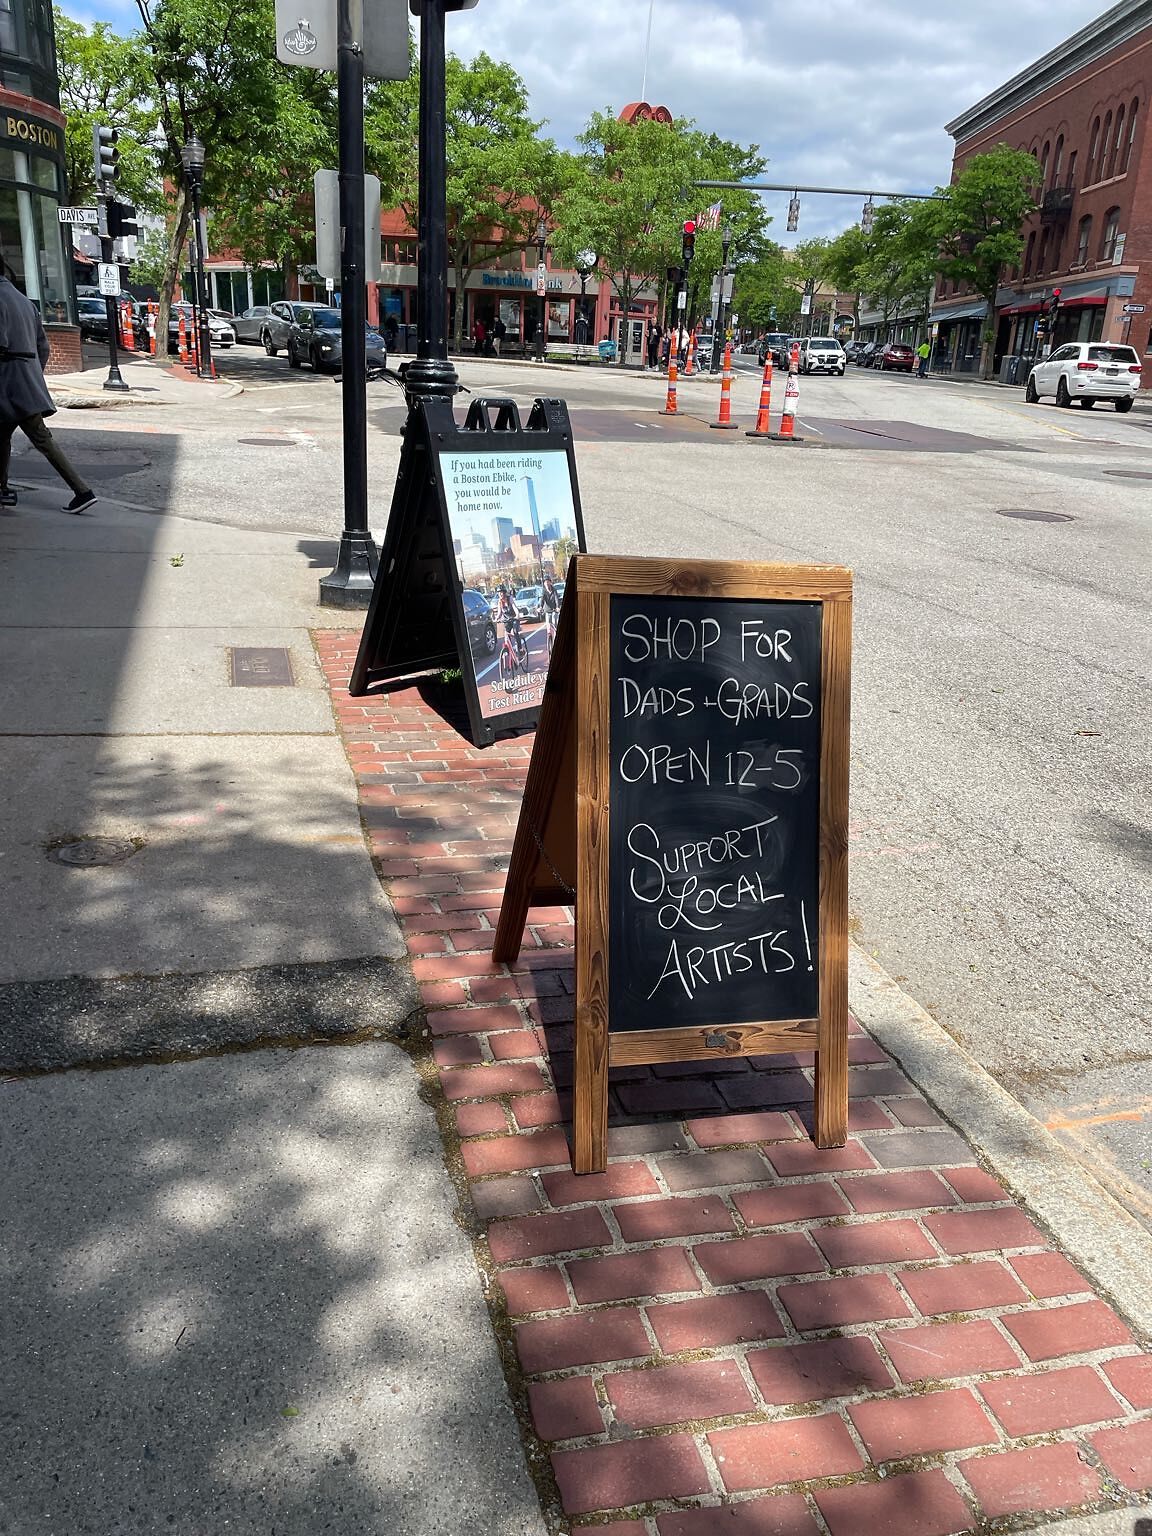 BOSTON
DAVIS AVE
Brookline Bank
If you had been riding
a Boston Ebike,
you would be
home now.
Schedule
Test Ride
SHOP FOR
DADS + GRADS
OPEN 12-5
SUPPORT
LOCAL
ARTISTS!